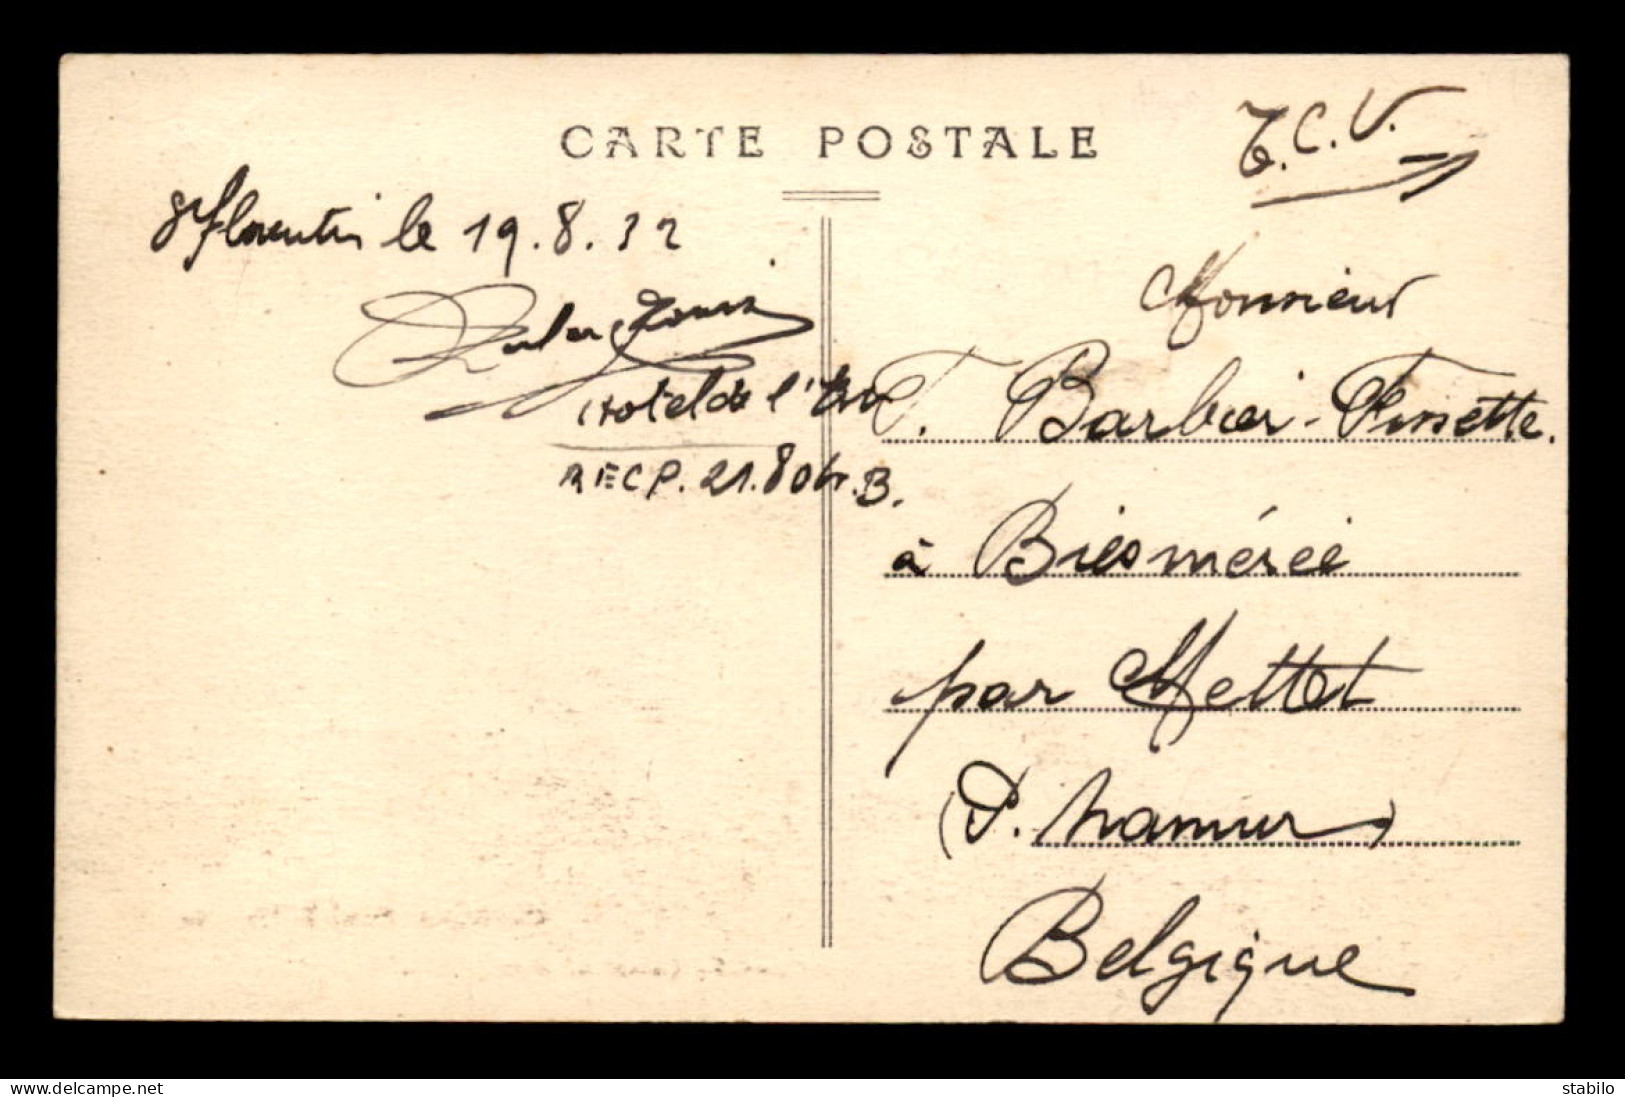 CARTE POSTALE
T.C.V.
St florentin le 19.8.32
Hotel de l'
RECP. 21.8 06r. B.
Monsieur
F. Barbier-Finsette.
à Biesmérée
par Mettet
(P. Namur)
Belgique
www.delcampe.net
stabilo